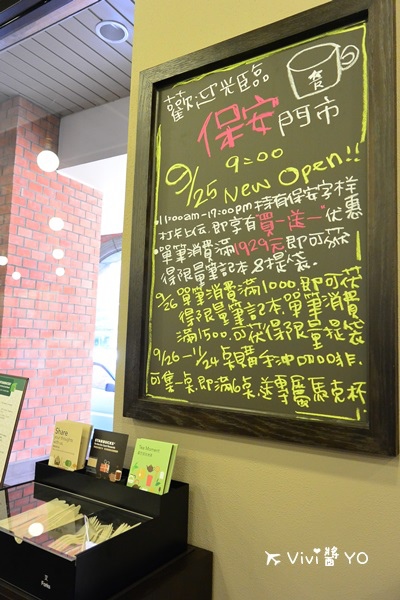 歡迎光臨
保安門市
9/25 9:00
New Open!!
•11:00am-17:00pm 持有保安字樣
打卡上傳.即享有"買一送一"優惠
•單筆消費滿1929元即可获
得限量筆記本&提袋.
9/26 單筆消費滿1000.即可获
得限量筆記本.單筆消費
滿1500.可获得限量提袋
9/26-11/24 桌購手沖
可集一桌.即滿6桌送專屬馬克杯
Share
STARBUCKS
Tea Moment
Forks
Vivi醬YO